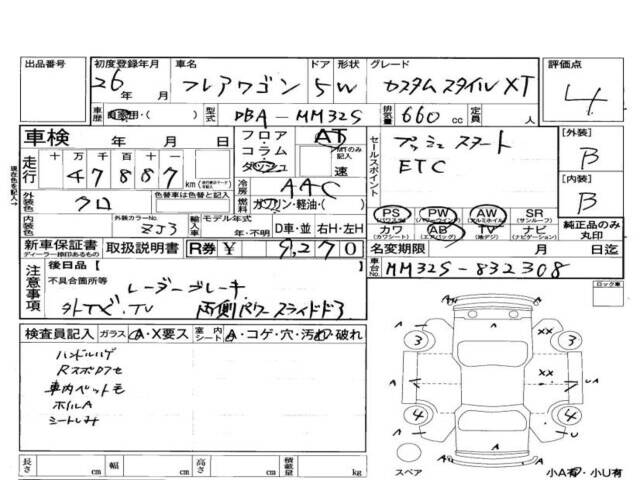 出品番号
初度登録年月 26年 月
車名 フレアワゴン
ドア 5
形状 W
グレード カスタムスタイルXT
評価点 4
車歴 自家用・( )
型式 DBA-MM32S
排気量 660 cc
定員 人
車検 年 月 日
フロア・コラム・ダッシュ AT
MTのみ記入 速
セールスポイント プッシュスタート
ETC
[外装] B
走行 十万千百十一
47887 km
冷房 AAC
[内装] B
外装色 クロ
色替車は色替と記入
ガソリン・軽油・( )
PS PW AW SR
(パワステ) (パワーウィンド) (アルミホイル) (サンルーフ)
内装色
外装カラーNo. ZJ3
輸入車 モデル年式 年・不明
D車・並 右H・左H
カワ AB TV ナビ
(カワシート) (エアバッグ) (地デジ) (ナビゲーション)
純正品のみ丸印
新車保証書 取扱説明書 R券 ¥ 9,270
ディーラー捺印あるもの
名変期限 月 日迄
注意事項 後日品[ ]
車台No. MM32S-832308
不具合箇所等 レーダーブレーキ
外TV.TV 両側パワースライドドア
ロック車
検査員記入 ガラス A・X要ス 室内シート A・コゲ・穴・汚れ・破れ
ハンドルハゲ
車内ペット毛
ホイルA
シートしみ
長さ cm 幅 cm 高さ cm 積載量 kg
スペア
小A有・小U有
現在色を記入→
A A
3 XX 3
A XX UA
4 4
A A